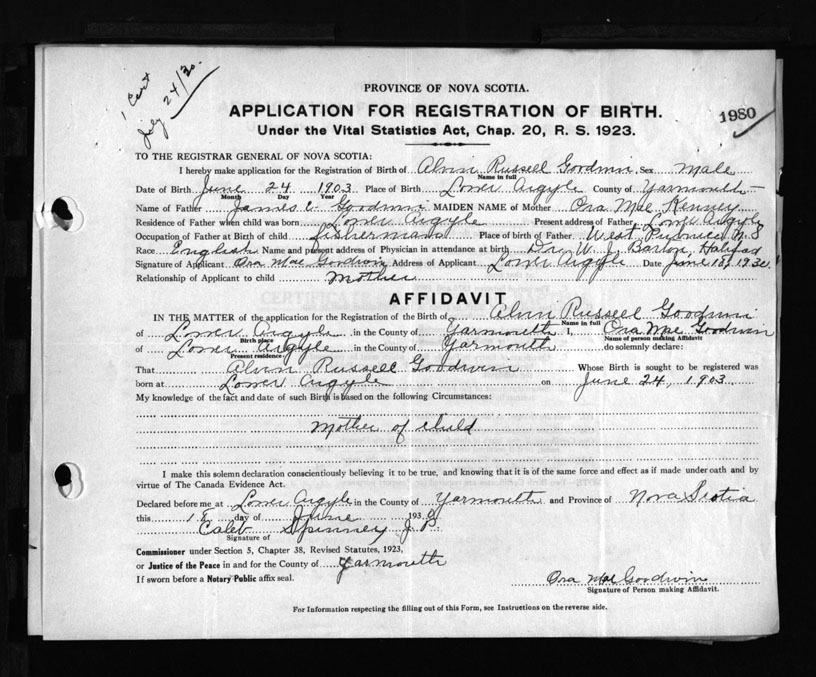 1 Cert
July 24/30.
PROVINCE OF NOVA SCOTIA.
APPLICATION FOR REGISTRATION OF BIRTH.
1980
Under the Vital Statistics Act, Chap. 20, R. S. 1923.
TO THE REGISTRAR GENERAL OF NOVA SCOTIA:
I hereby make application for the Registration of Birth of Alvin Russell Goodwin Sex Male
Name in full
Date of Birth June 24 1903 Place of Birth Lower Argyle County of Yarmouth
Month Day Year
Name of Father James E. Goodwin MAIDEN NAME of Mother Ora Mae Kenney
Residence of Father when child was born Lower Argyle Present address of Father Lower Argyle
Occupation of Father at Birth of child fisherman Place of birth of Father West Pubnico N.S
Race English Name and present address of Physician in attendance at birth Dr. W. J. Barton, Halifax
Signature of Applicant Ora Mae Goodwin Address of Applicant Lower Argyle Date June 18, 1930.
Relationship of Applicant to child Mother
AFFIDAVIT
IN THE MATTER of the application for the Registration of the Birth of Alvin Russell Goodwin
Name in full
of Lower Argyle in the County of Yarmouth I, Ora Mae Goodwin
Birth place Name of person making Affidavit
of Lower Argyle in the County of Yarmouth do solemnly declare:
Present residence
That Alvin Russell Goodwin Whose Birth is sought to be registered was
born at Lower Argyle on June 24, 1903
My knowledge of the fact and date of such Birth is based on the following Circumstances:
Mother of child
I make this solemn declaration conscientiously believing it to be true, and knowing that it is of the same force and effect as if made under oath and by
virtue of The Canada Evidence Act.
Declared before me at Lower Argyle in the County of Yarmouth and Province of Nova Scotia
this 18 day of June 1930
Caleb Spinney J.P.
Signature of
Commissioner under Section 5, Chapter 38, Revised Statutes, 1923,
or Justice of the Peace in and for the County of Yarmouth
If sworn before a Notary Public affix seal.
Ora Mae Goodwin
Signature of Person making Affidavit.
For Information respecting the filling out of this Form, see Instructions on the reverse side.